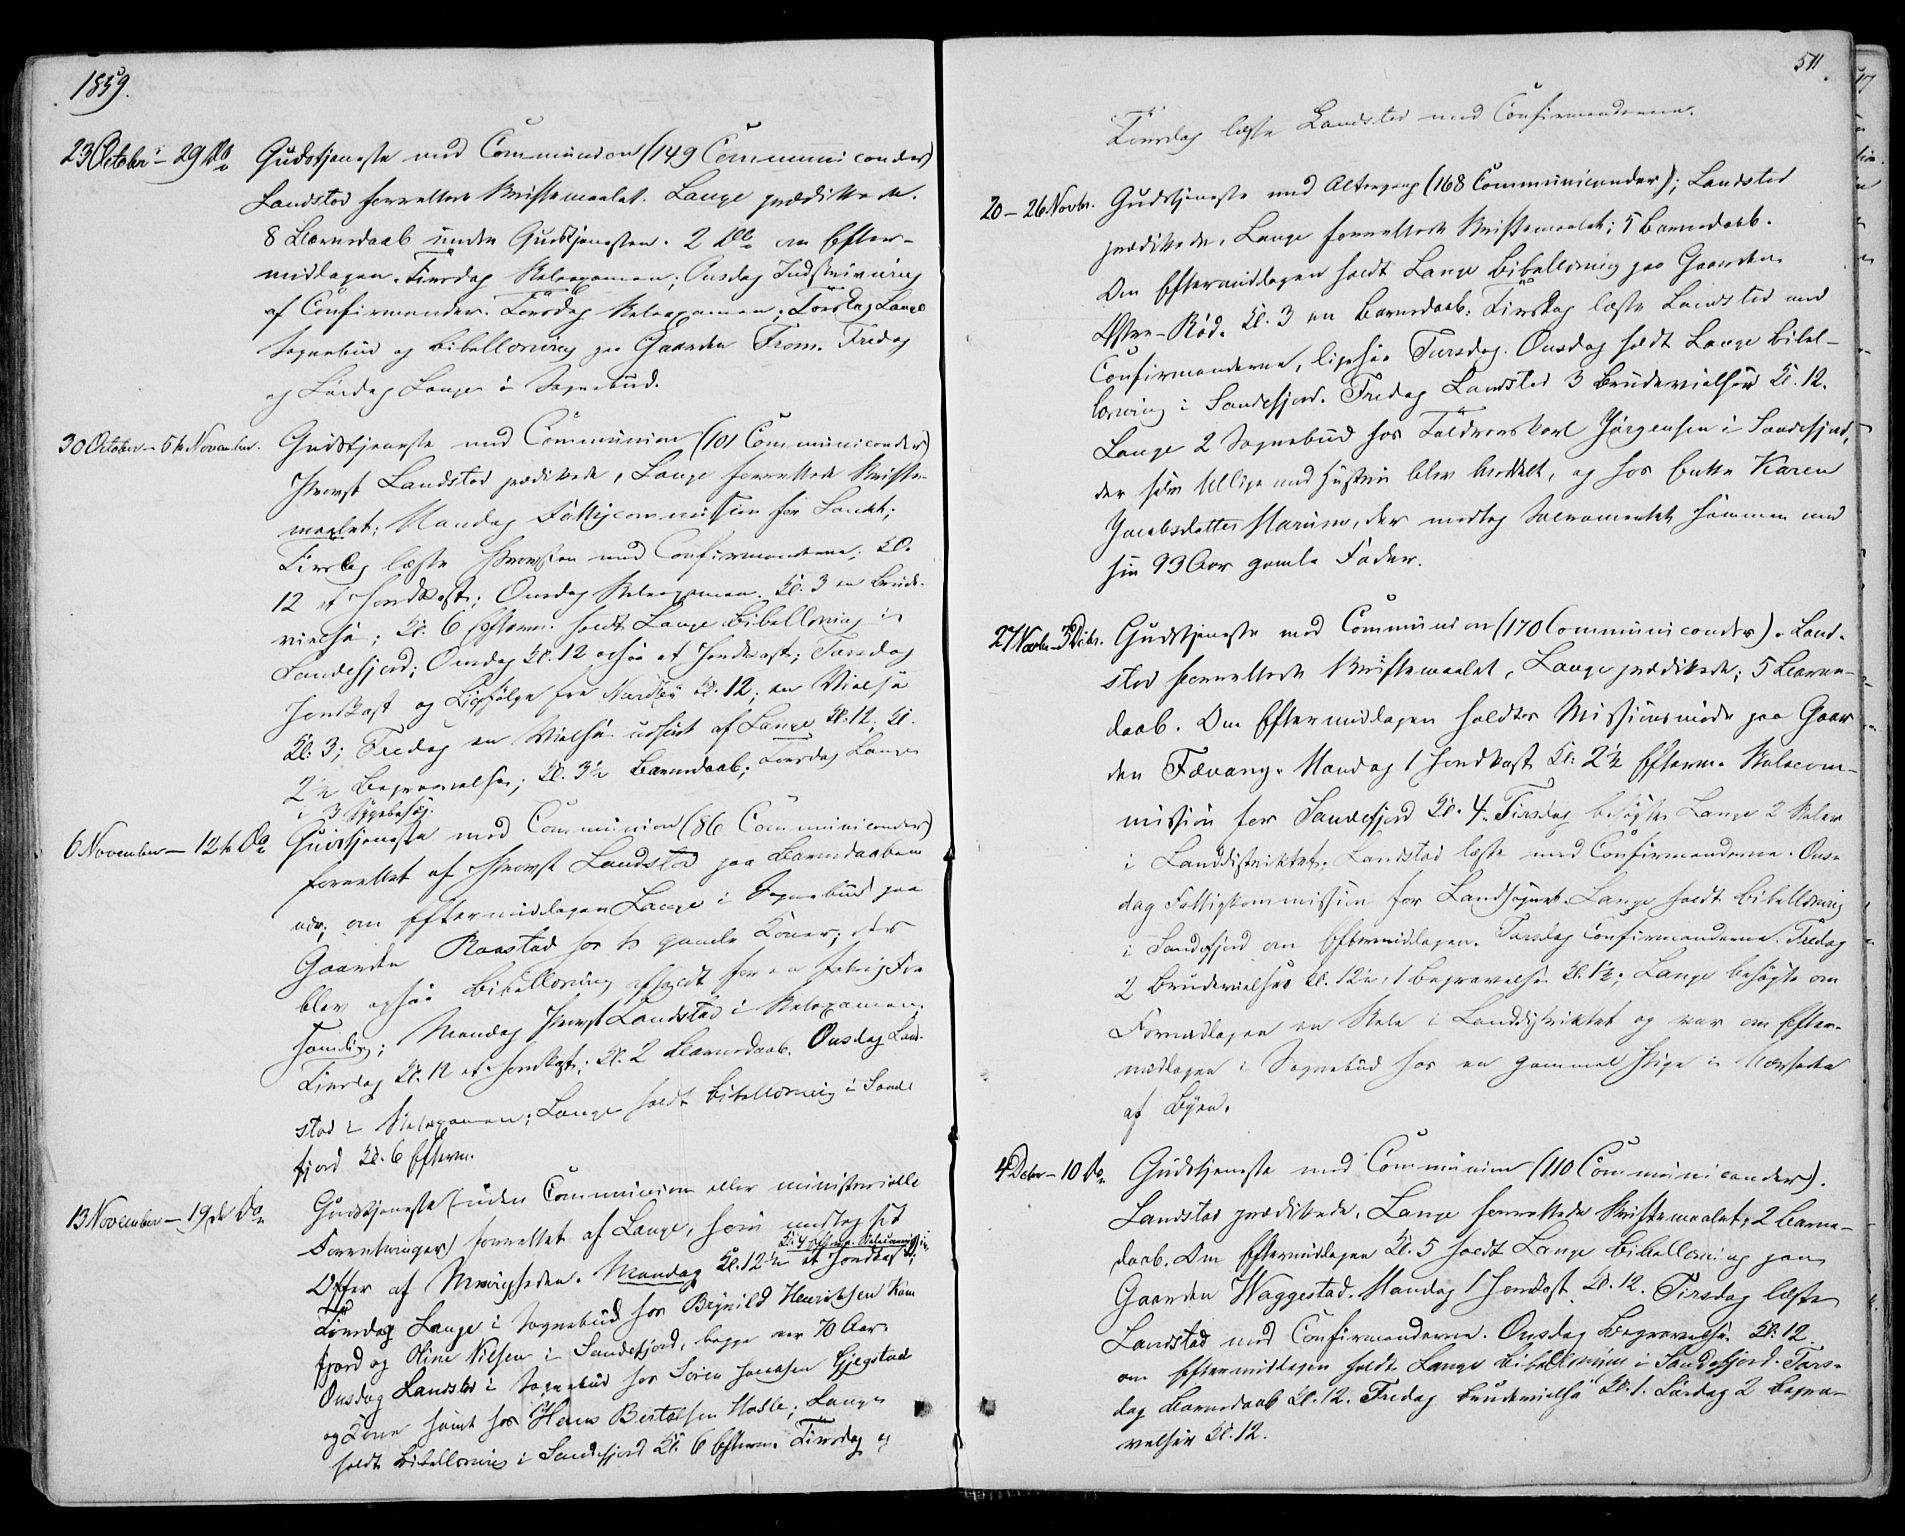 1859.
23 October – 29 Do Gudstjeneste med Communion (149 Communicander)
Landstad forrettede Skriftemaalet. Lange prædikede.
8 Barnedaab under Gudstjenesten. 2 Do om Efter-
middagen. Tirsdag Skoleexamen; Onsdag Indskrivning
af Confirmander. Torsdag Skoleexamen; Torsdag Lange
Sognebud og Bibellæsning paa Gaarden From. Fredag
og Lördag Lange i Sognebud.
30 October – 5te November. Gudstjeneste med Communion (101 Communicander)
Provst Landstad prædikede, Lange forrettede Skrifte-
maalet; Mandag Fattigcommission for Landet;
Tirsdag læste Provsten med Confirmanderne; Kl.
12 et Jordkast; Onsdag Skoleexamen. Kl. 3 en Brude-
vielse; Kl. 6 Efterm. holdt Lange Bibellæsning i
Sandefjord; Onsdag Kl. 12 også et Jordkast; Torsdag
Jordkast og Ligfölge fra Kl. 12; en Vielse
Kl. 3; Fredag en Vielse udfört af Lange Kl. 12, Kl.
2½ Begravelse; Kl. 3½ Barnedaab; Lördag Lange
i 3 Sygebesög.
6 November – 12te Do Gudstjeneste med Communion (86 Communicander)
forrettet af Provst Landstad paa Barnedaaben
nær; om Eftermiddagen Lange i Sognebud paa
Gaarden Raastad hos to gamle Koner; der
blev ogsaa Bibellæsning afholdt for en
Mandag Provst Landstad i Skoleexamen;
Tirsdag Kl. 12 et Jordkast; Kl. 2 Barnedaab. Onsdag Land-
stad i Skoleexamen; Lange holdt Bibellæsning i Sande
fjord Kl. 6 Efterm.
13 November – 19de Do Gudstjeneste (uden Communion eller ministerielle
Forretninger) forrettet af Lange, som modtog sit
Kl. 4 Efterm. Skolecommission
Offer af Menigheden. Mandag Kl. 12½ et Jordkast;
Tirsdag Lange i Sognebud hos Brynild Henriksen Kam
fjord og Oline Nielsen i Sandefjord, begge over 70 Aar.
Onsdag Landstad i Sognebud hos Sören Jacobsen Gjegstad
og Kone samt hos Hans Bertelsen Hasle; Lange
holdt Bibellæsning i Sandefjord Kl. 6 Efterm. Tirsdag og
511.
Torsdag læste Landstad med Confirmanderne.
20 – 26 Novbr. Gudstjeneste med Altergang (168 Communicander); Landstad
prædikede, Lange forrettede Skriftemaalet; 5 Barnedaab.
Om Eftermiddagen holdt Lange Bibellæsning paa Gaarden
Östre-Röd. Kl. 3 en Barnedaab. Tirsdag læste Landstad med
Confirmanderne, ligesaa Torsdag. Onsdag holdt Lange Bibel-
læsning i Sandefjord. Fredag Landstad 3 Brudevielser Kl. 12.
Lange 2 Sognebud hos Jörgensen i Sandefjord,
der som tillige med Hustru blev betjent, og hos Enke Karen
Jacobsdatter Marum, der modtog Sacramentet sammen med
sin 93 Aar gamle Fader.
27 Novbr – 3 Debr. Gudstjeneste med Communion (170 Communicander). Land-
stad forrettede Skriftemaalet, Lange prædikede; 5 Barne-
daab. Om Eftermiddagen holdtes Missionsmöde paa Gaar
den Fævang. Mandag 1 Jordkast Kl. 2½ Efterm. Skolecom-
mission for Sandefjord Kl. 4. Tirsdag besögte Lange 2 Skoler
i Landdistriktet; Landstad læste med Confirmanderne. Ons-
dag Fattigkommission for Landsognet. Lange holdt Bibellæsning
i Sandefjord om Eftermiddagen. Torsdag Confirmanderne. Fredag
2 Brudevielser Kl. 12½, 1 Begravelse Kl. 1½; Lange besögte om
Formiddagen en Skole i Landdistriktet og var om Efter-
middagen i Sognebud hos en gammel Pige i Nærheden
af Byen.
4 Debr – 10 Do Gudstjeneste med Communion (110 Communicander).
Landstad prædikede, Lange forrettede Skriftemaalet, 2 Barne-
daab. Om Eftermiddagen Kl. 5 holdt Lange Bibellæsning paa
Gaarden Waggestad. Mandag 1 Jordkast Kl. 12. Tirsdag læste
Landstad med Confirmanderne. Onsdag Begravelse Kl. 12
om Eftermiddagen holdt Lange Bibellæsning i Sandefjord. Tors-
dag Barnedaab Kl. 12. Fredag Brudevielse Kl. 1. Lördag 2 Begra-
velser Kl. 12.